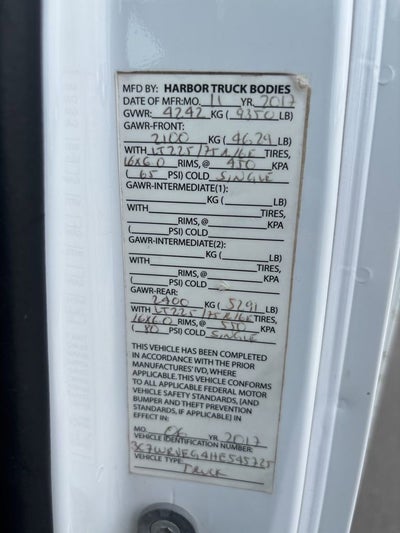 MFD BY: HARBOR TRUCK BODIES
DATE OF MFR:MO. 11 YR. 2017
GVWR: 4242 KG ( 9350 LB)
GAWR-FRONT:
2100 KG ( 4629 LB)
WITH LT225/75R16E TIRES,
16X6.0 RIMS,@ 450 KPA
( 65 PSI) COLD SINGLE
GAWR-INTERMEDIATE(1):
KG ( LB)
WITH TIRES,
RIMS,@ KPA
( PSI) COLD
GAWR-INTERMEDIATE(2):
KG ( LB)
WITH TIRES,
RIMS,@ KPA
( PSI) COLD
GAWR-REAR:
2400 KG ( 5291 LB)
WITH LT225/75R16E TIRES,
16X6.0 RIMS,@ 550 KPA
( 80 PSI) COLD SINGLE
THIS VEHICLE HAS BEEN COMPLETED
IN ACCORDANCE WITH THE PRIOR
MANUFACTURES' IVD, WHERE
APPLICABLE. THIS VEHICLE CONFORMS
TO ALL APPLICABLE FEDERAL MOTOR
VEHICLE SAFETY STANDARDS, [AND
BUMPER AND THEFT PREVENTION
STANDARDS, IF APPLICABLE] IN
EFFECT IN:
MO. YR. 2017
VEHICLE IDENTIFICATION NUMBER:
VEHICLE TYPE:
TRUCK